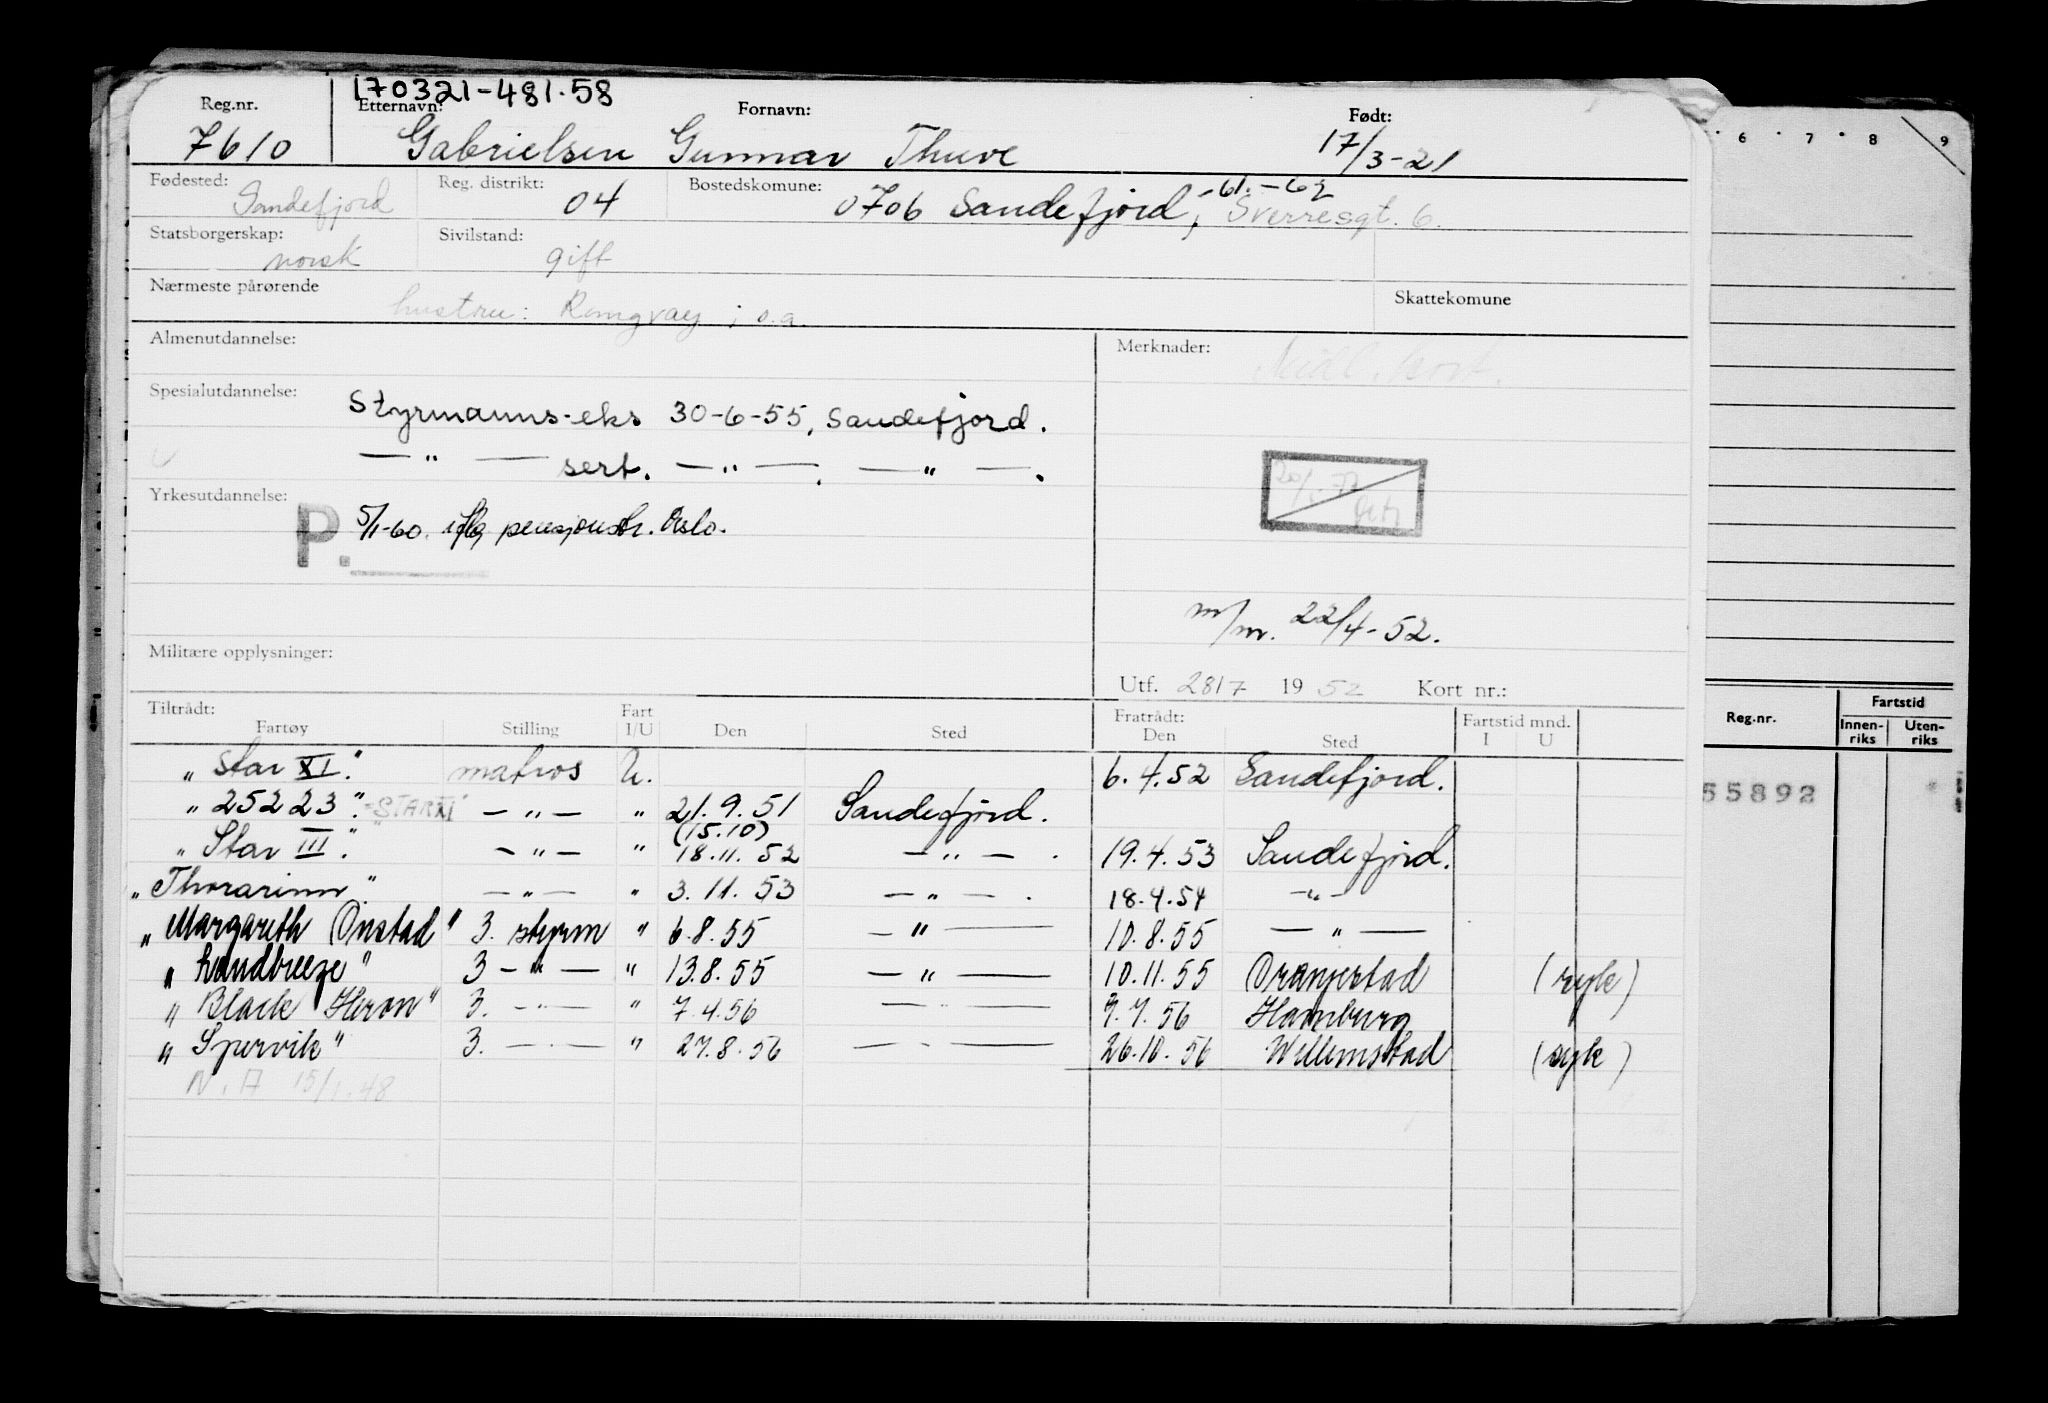 170321-481.58
Reg.nr. Etternavn: Fornavn: Født:
7610 Gabrielsen Gunnar Thuve 17/3-21
Fødested: Sandefjord Reg. distrikt: 04 Bostedskommune: 0706 Sandefjord, -61.-62 Sverresgt. 6.
Statsborgerskap: norsk Sivilstand: gift
Nærmeste pårørende hustru: Rongvay i o.a. Skattekomune
Almenutdannelse: Merknader: Midl. kort.
Spesialutdannelse: Styrmanns-eks 30-6-55, Sandefjord.
— " — sert. — " —. — " —.
Yrkesutdannelse: P. 5/1-60. iflg pensjonstr. Oslo.
m/m. 22/4-52.
Militære opplysninger:
Utf. 28/7 1952 Kort nr.:
Tiltrådt: Fart Fratrådt: Fartstid mnd.
Fartøy Stilling I/U Den Sted Den Sted I U
"Star XI". matros U. 6.4.52 Sandefjord.
"25223". =STAR XI" — " — " 21.9.51 Sandefjord.
(15.10)
"Star III". — " — " 18.11.52 — " — . 19.4.53 Sandefjord.
"Thorarinn". — " — " 3.11.53 — " — . 18.4.54 — " —
"Margarith Onstad" 3. styrm " 6.8.55 — " — 10.8.55 — " —
"Landbreeze" 3 — " — " 13.8.55 — " — 10.11.55 Oranjestad (syk)
"Black Heron" 3. — " — " 7.4.56 — " — 7.7.56 Hamburg
"Spervik" 3. — " — " 27.8.56 — " — 26.10.56 Willemstad (syk)
N.A 15/1.48
6 7 8 9
Reg.nr. Fartstid
Innen-riks Uten-riks
55892